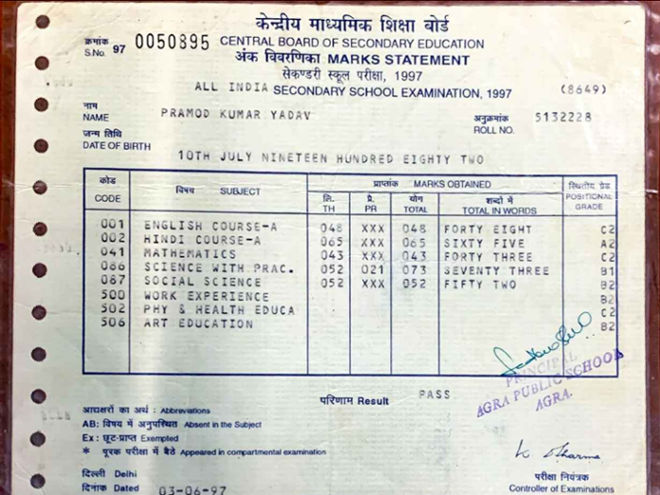 केन्द्रीय माध्यमिक शिक्षा बोर्ड
क्रमांक
S.No. 97 0050895 CENTRAL BOARD OF SECONDARY EDUCATION
अंक विवरणिका MARKS STATEMENT
सेकण्डरी स्कूल परीक्षा, 1997
ALL INDIA SECONDARY SCHOOL EXAMINATION, 1997 (8649)
नाम
NAME PRAMOD KUMAR YADAV
अनुक्रमांक
ROLL NO. 5132228
जन्म तिथि
DATE OF BIRTH
10TH JULY NINETEEN HUNDRED EIGHTY TWO
कोड
CODE
विषय SUBJECT
प्राप्तांक MARKS OBTAINED
लि.
TH
प्रै.
PR
योग
TOTAL
शब्दों में
TOTAL IN WORDS
स्थितीय ग्रेड
POSITIONAL
GRADE
001 ENGLISH COURSE-A 048 XXX 048 FORTY EIGHT C2
002 HINDI COURSE-A 065 XXX 065 SIXTY FIVE A2
041 MATHEMATICS 043 XXX 043 FORTY THREE C2
086 SCIENCE WITH PRAC. 052 021 073 SEVENTY THREE B1
087 SOCIAL SCIENCE 052 XXX 052 FIFTY TWO B2
500 WORK EXPERIENCE B2
502 PHY & HEALTH EDUCA C2
506 ART EDUCATION B2
PRINCIPAL
AGRA PUBLIC SCHOOL
AGRA.
परिणाम Result PASS
आद्यक्षरों का अर्थ : Abbreviations
AB: विषय में अनुपस्थित Absent in the Subject
Ex : छूट-प्राप्त Exempted
* पूरक परीक्षा में बैठे Appeared in compartmental examination
दिल्ली Delhi
दिनांक Dated 03-06-97
K Sharma
परीक्षा नियंत्रक
Controller of Examinations